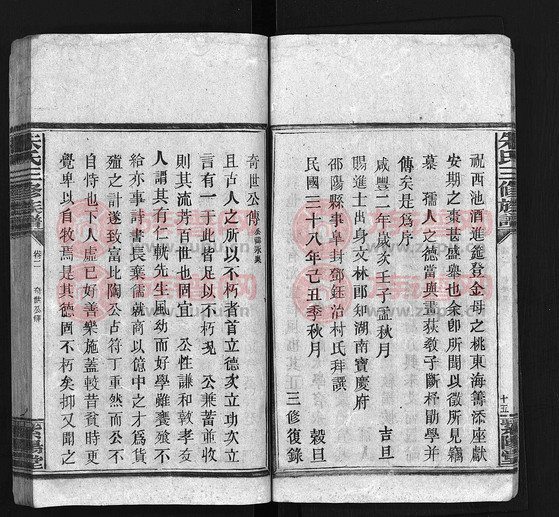 祝西池酒進蓬登金母之桃東海籌添座獻
安期之棗甚盛舉也余卽所聞以徵所見竊
慕　孺人之德當與畫荻敎子斷杼勖學并
傳矣是爲序
咸豐二年歲次壬子孟秋月　吉旦
賜進士出身文林郎知湖南寶慶府
邵陽縣事阜封鄧鈺治村氏拜譔
民國三十八年己丑季秋月　穀旦
三修復錄
朱氏三修族譜
十五
朱氏三修族譜
卷二
奇世公傳
奇世公傳
且古人之所以不朽者首立德次立功次立
言有一于此皆足以不朽况　公兼蓄並收
則其流芳百世也固宜　公性謙和敦孝友
人謂其有仁軌先生風幼而好學雖饔飧不
給亦事詩書長棄儒就商以億中之才爲貨
殖之計遂致富比陶公占符丁重然而公不
自恃也下人虛已好善樂施蓋較昔貧時更
覺卑以自牧焉是其德固不朽矣抑又聞之